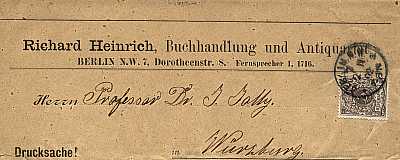 Richard Heinrich, Buchhandlung und Antiqua
BERLIN N.W. 7, Dorotheenstr. 8. Fernsprecher 1, 1716.
Herrn Professor Dr. J. Jolly.
Würzburg.
Drucksache!